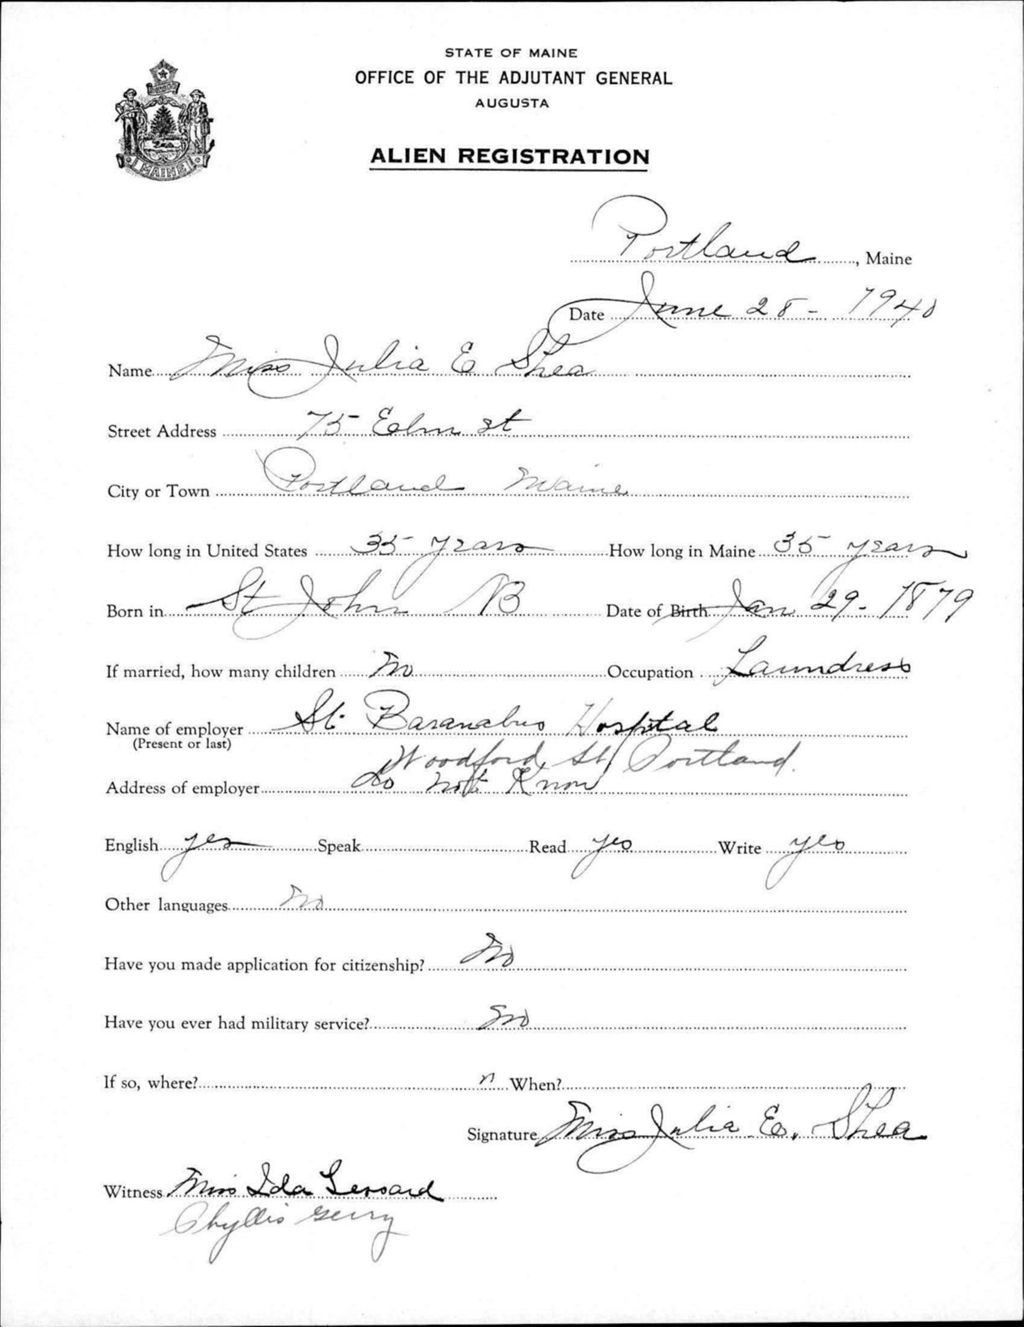 STATE OF MAINE
OFFICE OF THE ADJUTANT GENERAL
AUGUSTA
MAINE
ALIEN REGISTRATION
Portland, Maine
Date June 28 - 1940
Name Miss Julia E Shea
Street Address 75 Elm st
City or Town Portland Maine
How long in United States 35 years How long in Maine 35 years
Born in St John NB Date of Birth Jan 29 - 1879
If married, how many children No Occupation Laundress
Name of employer St. Baranabus Hospital
(Present or last)
Woodford St Portland.
Address of employer do not Know
English yes Speak Read yes Write yes
Other languages No
Have you made application for citizenship? No
Have you ever had military service? No
If so, where? n When?
Signature Miss Julia E. Shea
Witness Miss Ida Lessard
Phyllis Gerry